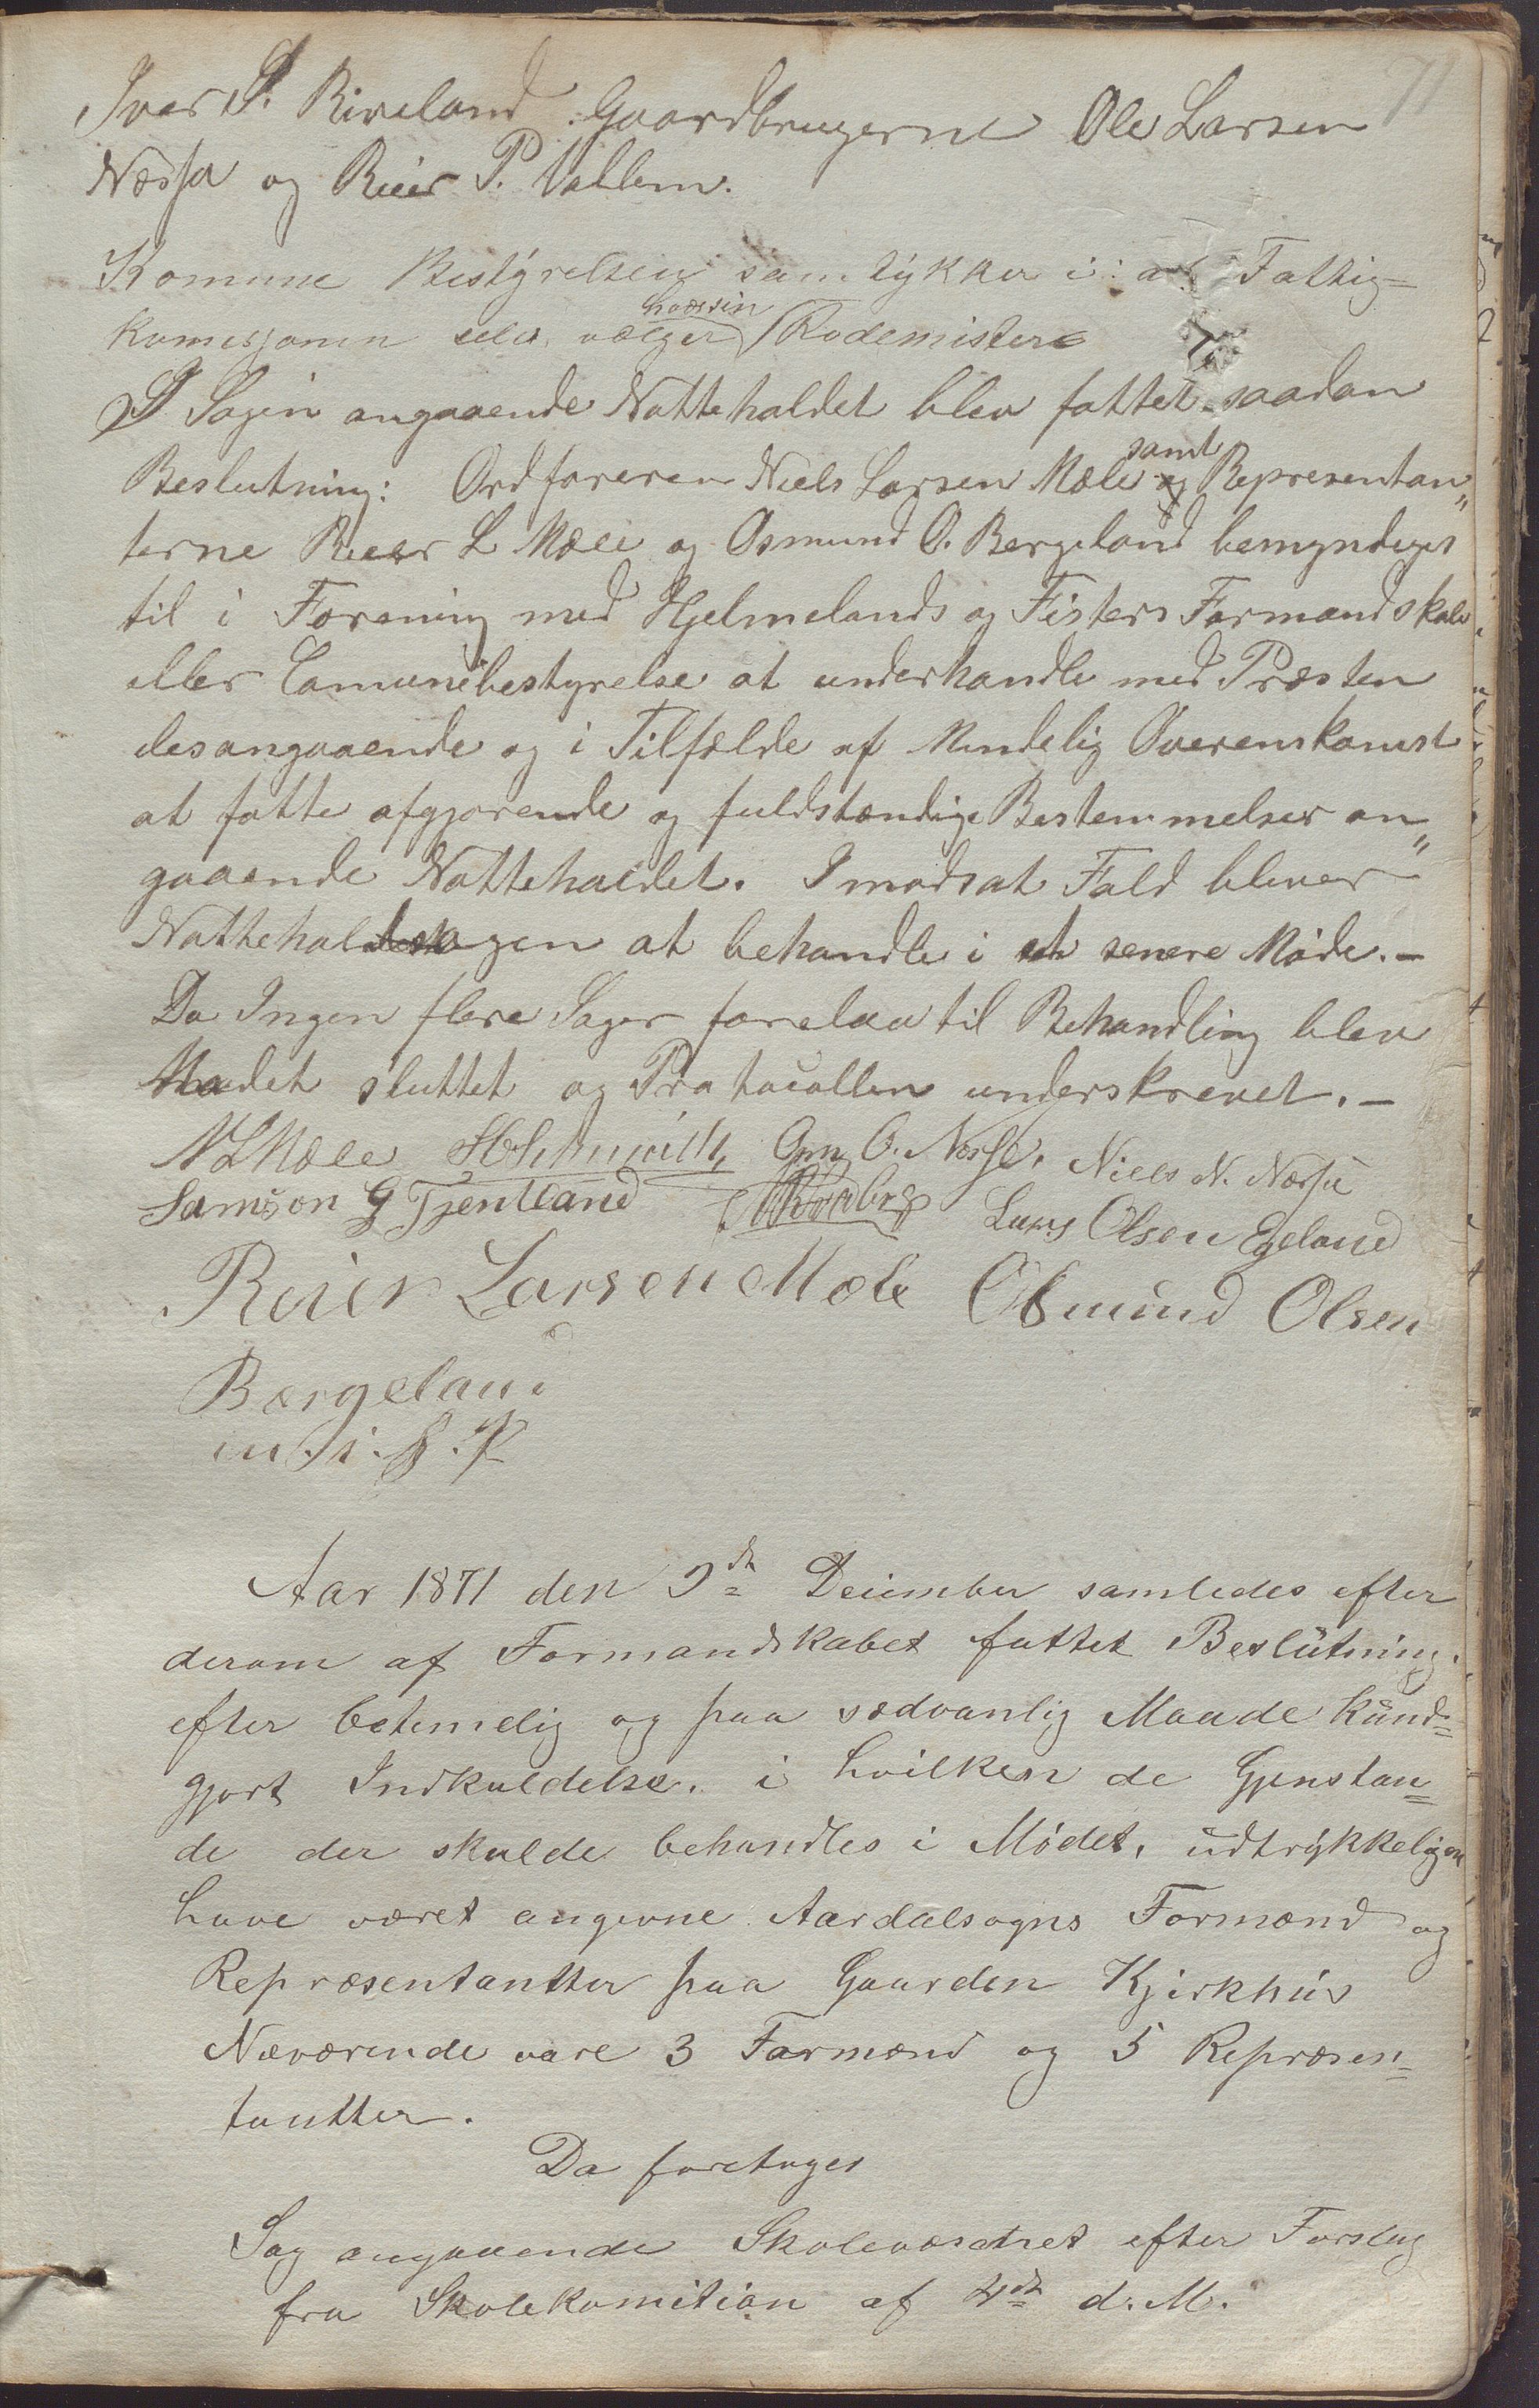 71
Iver S. Riveland Gaardbrugerne Ole Larsen
Nessa og Reier P. Vallem.
Komune Bestyrelsen samtykker i: at Fattig=
komisjonen selv vælger hversin Rodemister
I Sagen angaaende Natteholdet blev fattet saadan
Beslutning: Ordføreren Niels Larsen Mæle samt Representan„
terne Reier L Mæle og Osmund O. Bergeland bemyndiges
til i Forening med Hjelmelands og Fisters Formandskab
eller Comunebestyrelse at underhandle med Præsten
desangaaende og i Tilfælde af Mindelig Overenskomst
at fatte afgjørende og fuldstændige Bestemmelser an„
gaaende Natteholdet. I modsat Fald bliver
Natteholdsagen at behandle i et senere Møde.-
Da Ingen flere Sager forelaa til Behandling blev
Mødet sluttet og Protocollen underskrevet.-
N L Mæle Gm O. Nessa. Niels N. Nessa
Samson G Tjentland Lars Olsen Egeland
Reier Larsen Mæle Osmund Olsen
Bergeland
m. i. P. P
Aar 1871 den 9de December samledes efter
derom af Formandskabet fattet Beslutning,
efter betimelig og paa sædvanlig Maade kund=
gjort Indkaldelse, i hvilken de Gjenstan=
de der skulde behandles i Mødet, udtrykkeligen
have været angivne Aardalsogns Formænd og
Repræsentantter paa Gaarden Kjirkhus
Næværende vare 3 Formænd og 5 Repræsen=
tantter.
Da foretoges
Sag angaaende Skolevæsenet efter Forslag
fra Skolekomitien af 4de d. M.